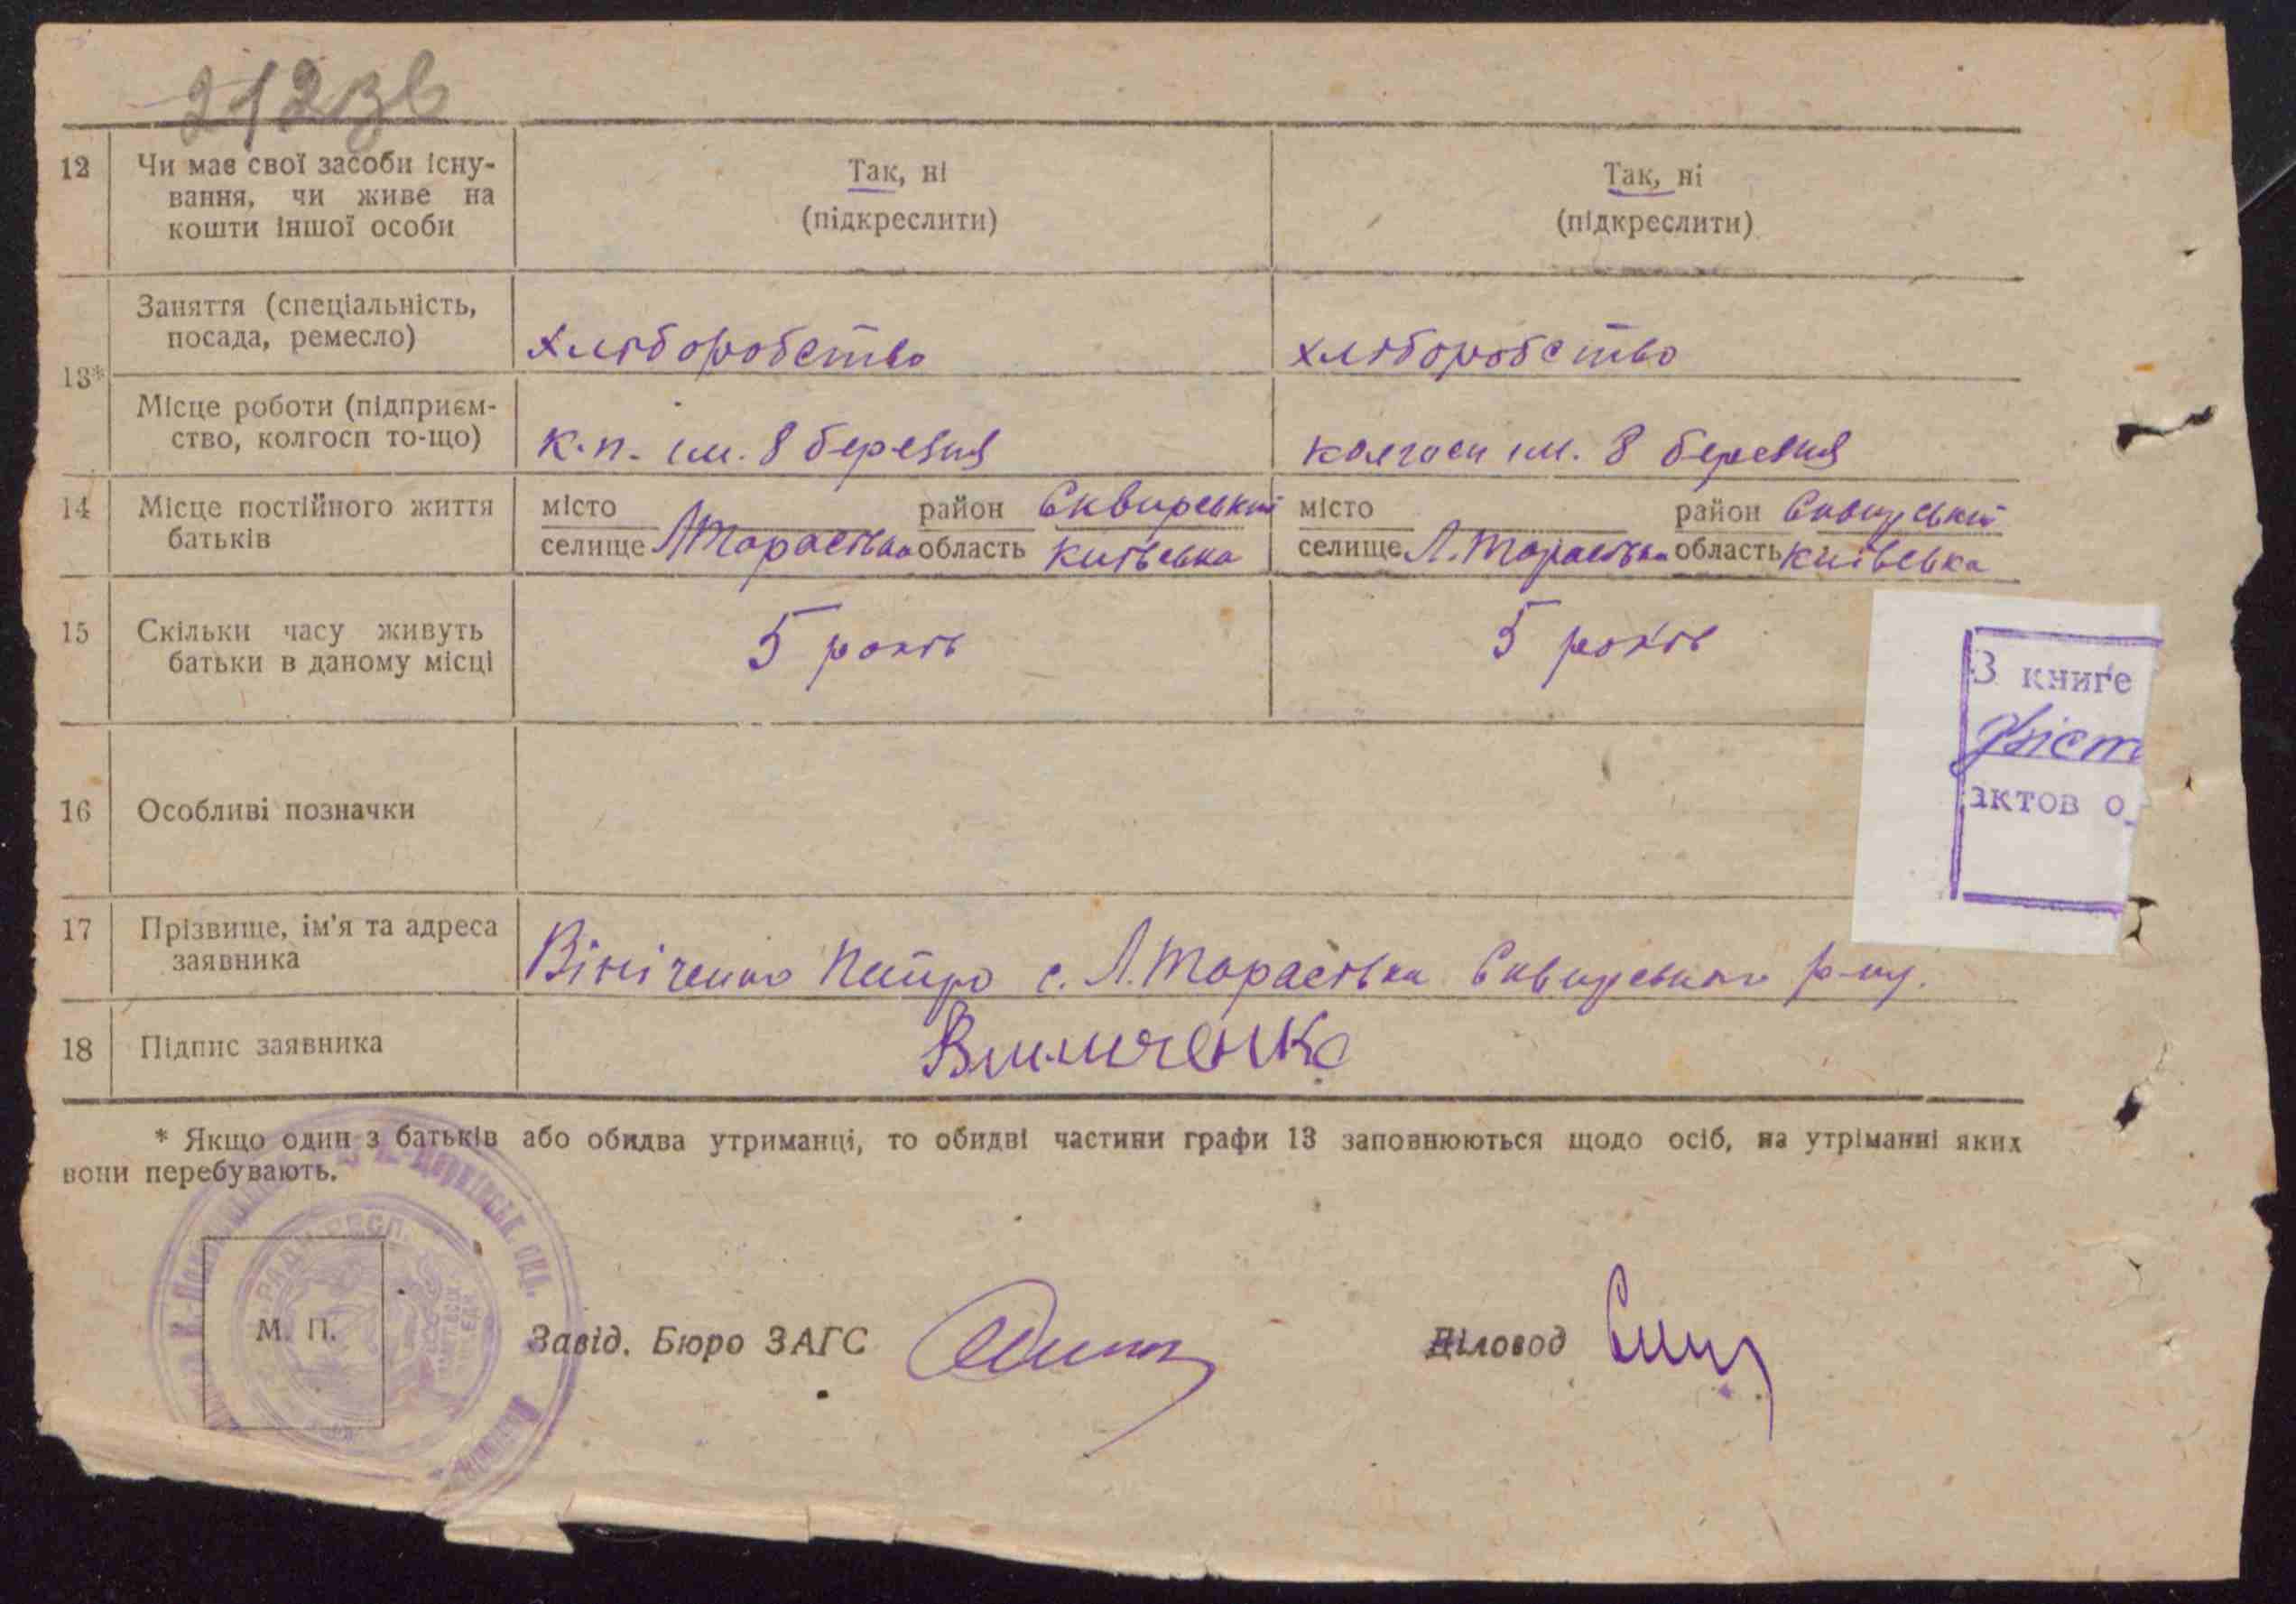 212зв
12 Чи має свої засоби існу- Так, ні Так, ні
вання, чи живе на (підкреслити) (підкреслити)
кошти іншої особи
Заняття (спеціальність,
посада, ремесло) хліборобство хліборобство
13*
Місце роботи (підприєм-
ство, колгосп то-що) к.п. ім. 8 березня колгосп ім. 8 березня
14 Місце постійного життя місто район Сквирський місто район Сквирський
батьків селище Л.Торасівка область Київська селище Л.Торасівка область Київська
15 Скільки часу живуть 5 років 5 років
батьки в даному місці
16 Особливі позначки
17 Прізвище, ім'я та адреса
заявника Вініченко Петро с. Л.Торасівка Сквирського р-ну.
18 Підпис заявника Виниченко
* Якщо один з батьків або обидва утриманці, то обидві частини графи 13 заповнюються щодо осіб, на утріманні яких
вони перебувають.
М. П.
Завід. Бюро ЗАГС Діловод
З книге
лист
актов о